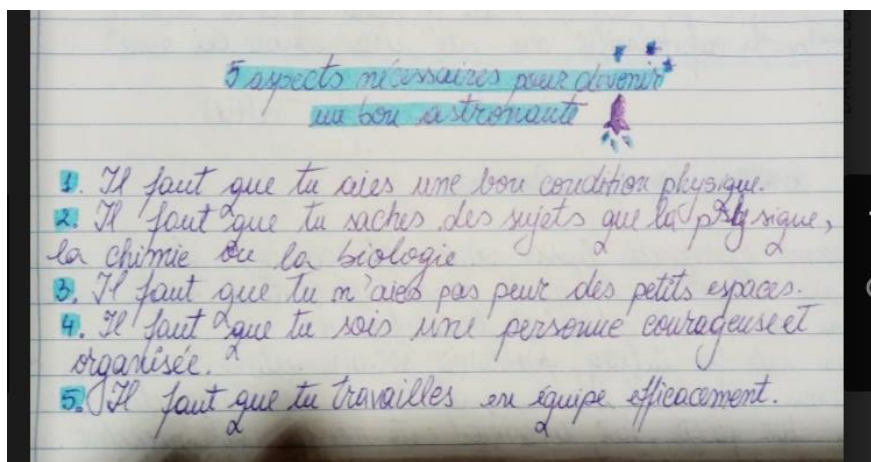 5 aspects nécessaires pour devenir
un bon astronaute
1. Il faut que tu aies une bon condition physique.
2. Il faut que tu saches des sujets que la physique,
la chimie ou la biologie
3. Il faut que tu n'aies pas peur des petits espaces.
4. Il faut que tu sois une personne courageuse et
organisée.
5. Il faut que tu travailles en équipe efficacement.